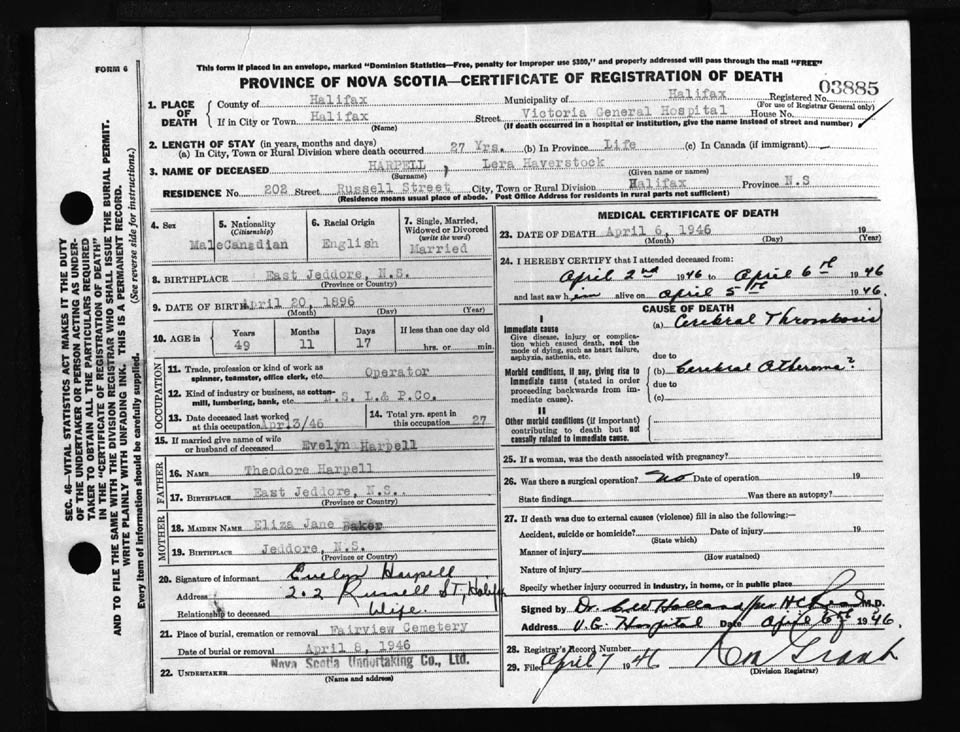 FORM 6
This form if placed in an envelope, marked "Dominion Statistics—Free, penalty for improper use $300," and properly addressed will pass through the mail "FREE"
PROVINCE OF NOVA SCOTIA—CERTIFICATE OF REGISTRATION OF DEATH
03885
1. PLACE OF DEATH
County of Halifax Municipality of Halifax Registered No.
(For use of Registrar General only)
If in City or Town Halifax Street Victoria General Hospital House No.
(Name) (If death occurred in a hospital or institution, give the name instead of street and number)
2. LENGTH OF STAY (in years, months and days)
(a) In City, Town or Rural Division where death occurred 27 Yrs. (b) In Province Life (c) In Canada (if immigrant)
3. NAME OF DECEASED HARPELL, Lera Haverstock
(Surname) (Given name or names)
RESIDENCE No. 202 Street Russell Street City, Town or Rural Division Halifax Province N.S
(Residence means usual place of abode. Post Office Address for residents in rural parts not sufficient)
4. Sex Male
5. Nationality (Citizenship) Canadian
6. Racial Origin English
7. Single, Married, Widowed or Divorced (write the word) Married
8. BIRTHPLACE East Jeddore, N.S.
(Province or Country)
9. DATE OF BIRTH April 20, 1896
(Month) (Day) (Year)
10. AGE in Years 49 Months 11 Days 17 If less than one day old hrs. or min.
OCCUPATION
11. Trade, profession or kind of work as spinner, teamster, office clerk, etc. Operator
12. Kind of industry or business, as cotton-mill, lumbering, bank, etc. N.S. L.& P.Co.
13. Date deceased last worked at this occupation Apr.3/46
14. Total yrs. spent in this occupation 27
15. If married give name of wife or husband of deceased Evelyn Harpell
FATHER
16. NAME Theodore Harpell
17. BIRTHPLACE East Jeddore, N.S.
(Province or Country)
MOTHER
18. MAIDEN NAME Eliza Jane Baker
19. BIRTHPLACE Jeddore, N.S.
(Province or Country)
20. Signature of informant Evelyn Harpell
Address 202 Russell ST, Halifx
Relationship to deceased Wife.
21. Place of burial, cremation or removal Fairview Cemetery
Date of burial or removal April 8, 1946
22. UNDERTAKER Nova Scotia Undertaking Co., Ltd.
(Name and address)
MEDICAL CERTIFICATE OF DEATH
23. DATE OF DEATH April 6, 1946 19
(Month) (Day) (Year)
24. I HEREBY CERTIFY that I attended deceased from:
April 2nd 1946 to April 6th 1946
and last saw him alive on April 5th 1946.
CAUSE OF DEATH
I
Immediate cause
Give disease, injury or complication which caused death, not the mode of dying, such as heart failure, asphyxia, asthenia, etc.
(a) Cerebral Thrombosis
due to
Morbid conditions, if any, giving rise to immediate cause (stated in order proceeding backwards from immediate cause).
(b) Cerebral Atheroma?
due to
(c)
II
Other morbid conditions (if important) contributing to death but not causally related to immediate cause.
25. If a woman, was the death associated with pregnancy?
26. Was there a surgical operation? No Date of operation 19
State findings Was there an autopsy?
27. If death was due to external causes (violence) fill in also the following:
Accident, suicide or homicide? Date of injury 19
(State which)
Manner of injury
(How sustained)
Nature of injury
Specify whether injury occurred in industry, in home, or in public place
Signed by Dr. Holland M.D.
Address V.G. Hospital Date April 6th 1946.
28. Registrar's Record Number
29. Filed April 7 1946
(Division Registrar)
SEC. 46—VITAL STATISTICS ACT MAKES IT THE DUTY
OF THE UNDERTAKER OR PERSON ACTING AS UNDER-
TAKER TO OBTAIN ALL THE PARTICULARS REQUIRED
IN THE "CERTIFICATE OF REGISTRATION OF DEATH"
AND TO FILE THE SAME WITH THE DIVISION REGISTRAR WHO SHALL ISSUE THE BURIAL PERMIT.
WRITE PLAINLY WITH UNFADING INK. THIS IS A PERMANENT RECORD.
Every item of information should be carefully supplied. (See reverse side for instructions.)